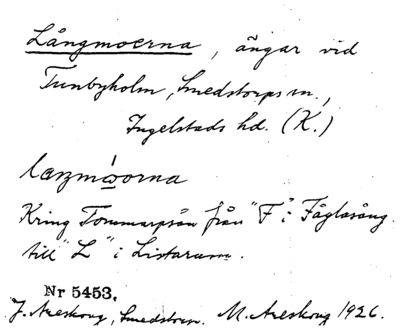 Långmoerna, ängar vid
Tunbyholm, Smedstorps sn.,
Ingelstads hd. (K.)
Kring Tommarpsån från "F" i Fåglasång
till "L" i Listarum.
Nr 5453.
J. Areskoug, Smedstorp. M. Areskoug 1926.